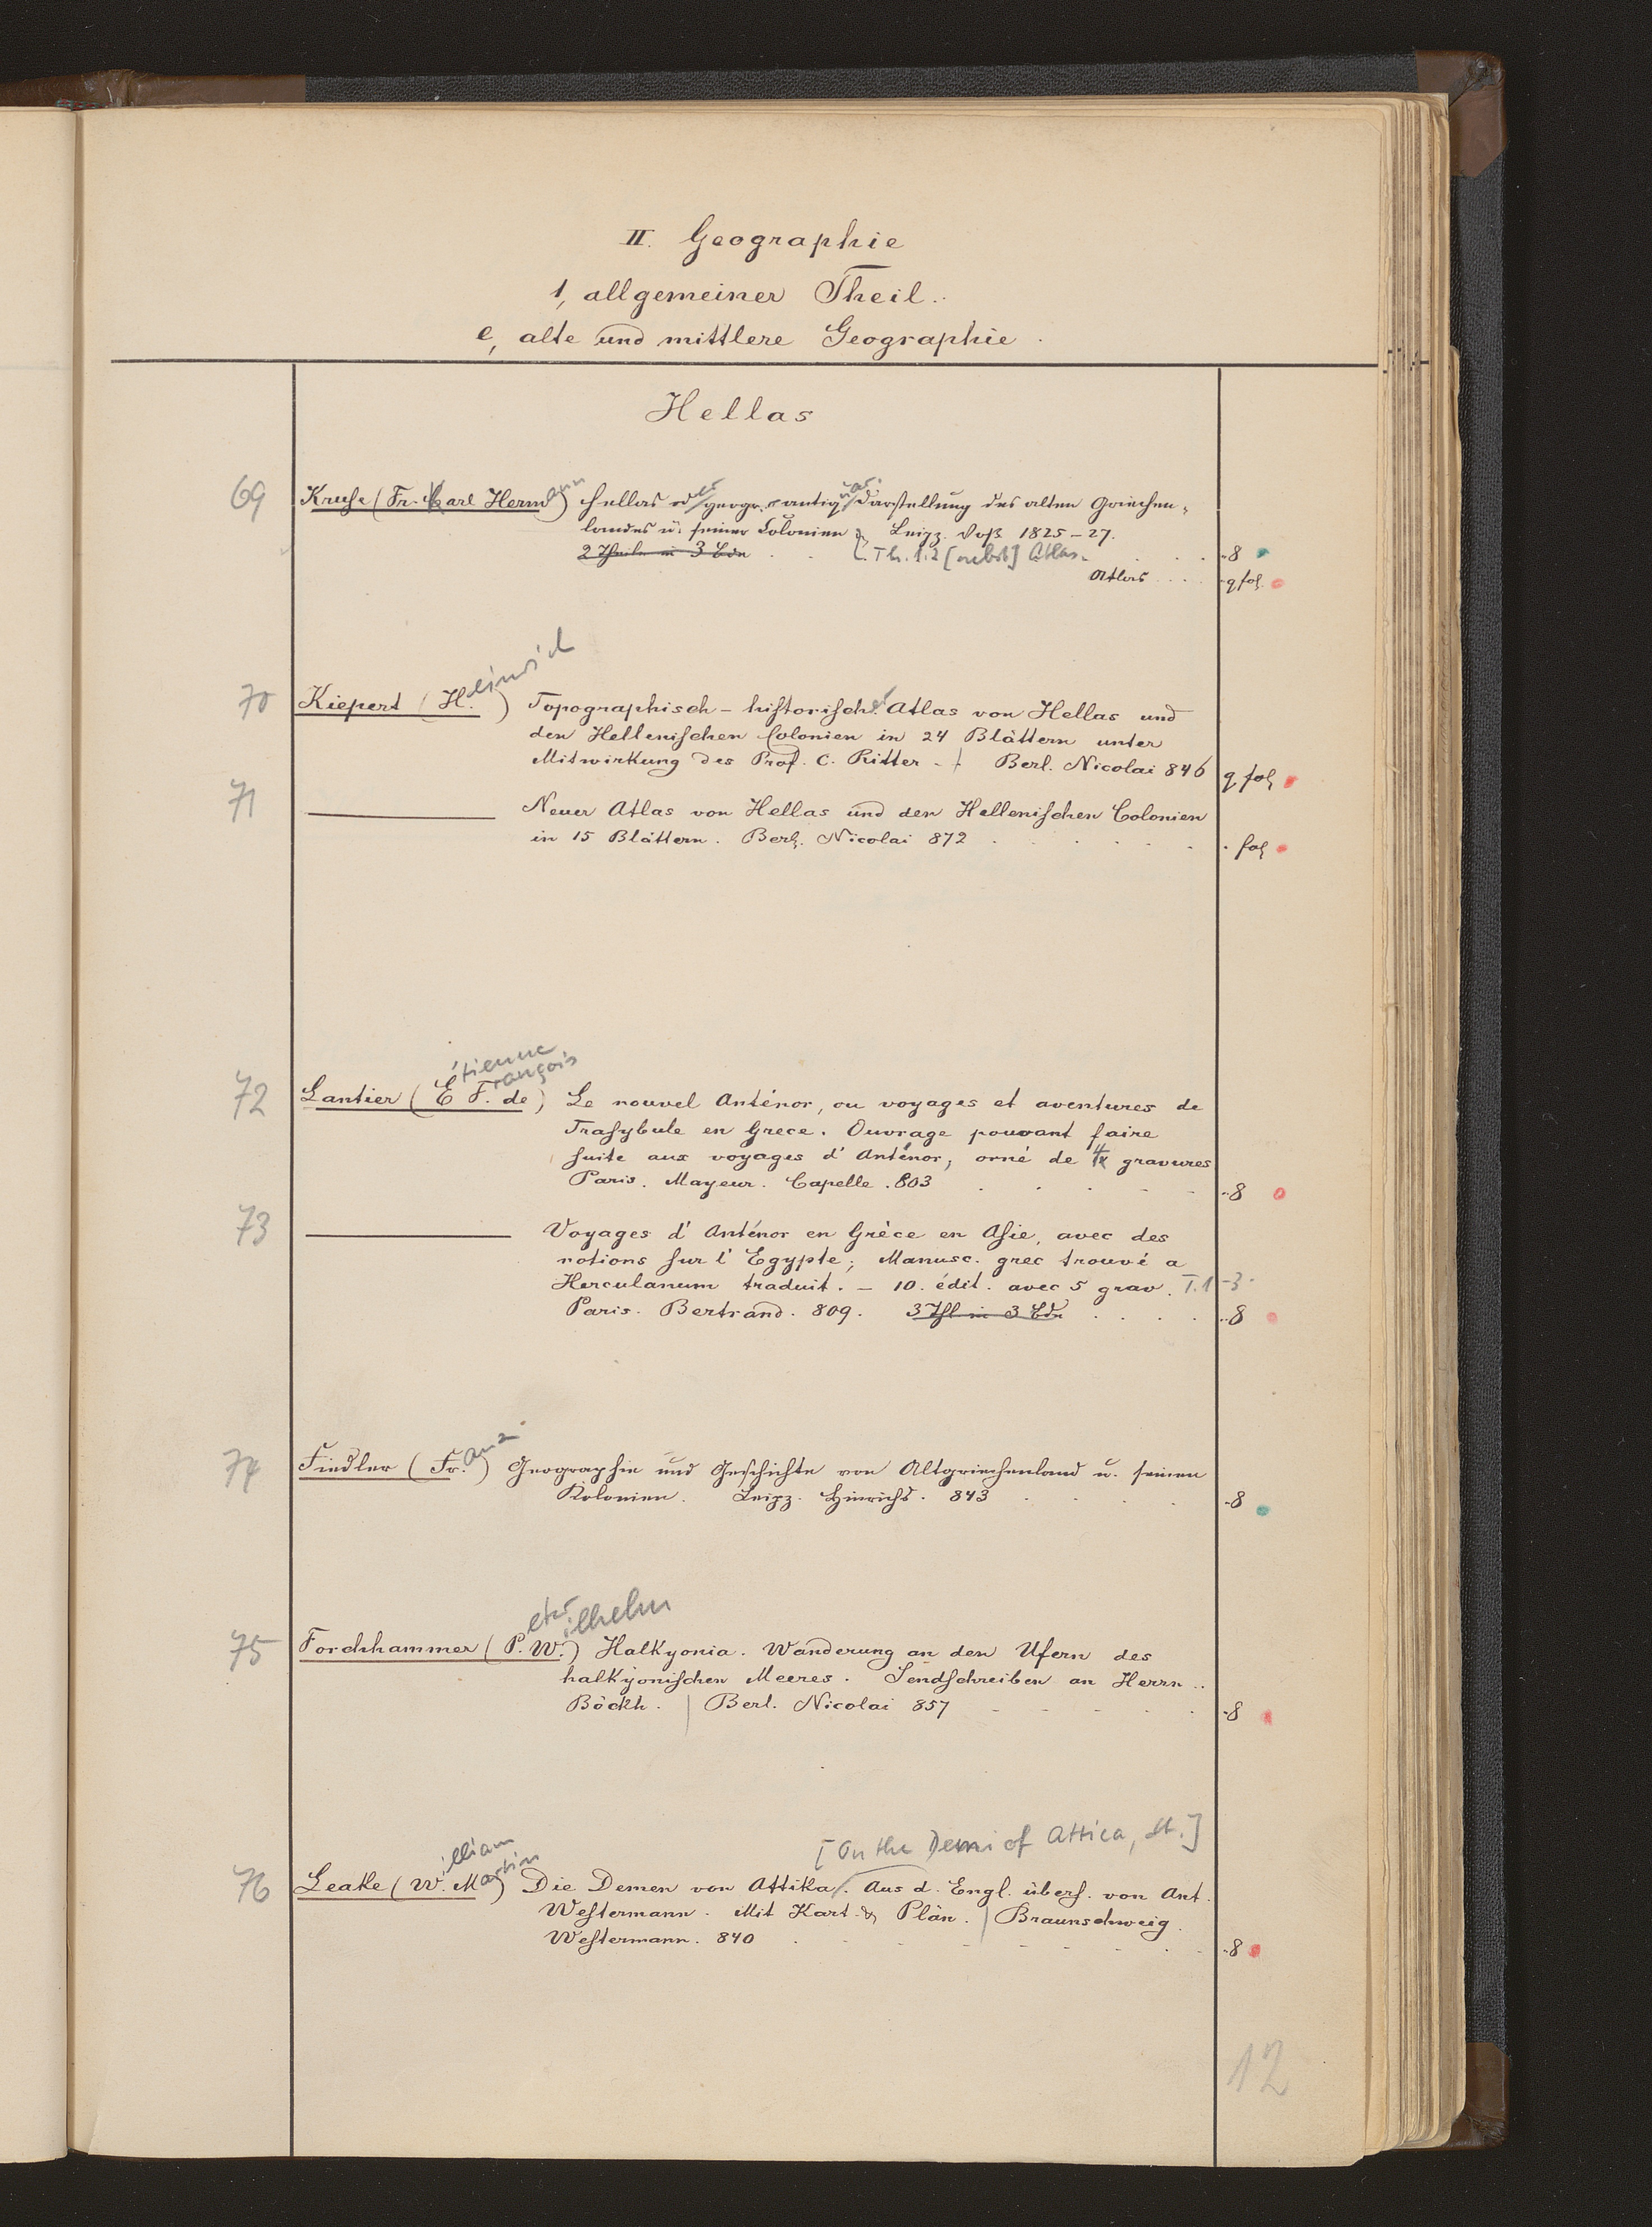 II. Geographie
1, allgemeiner Theil.
e, alte und mittlere Geographie.
Hellas
69 Kruse (Fr. Karl Hermann) Hellas od geogr. antiq Darstellung des alten Griechen-
landes u. seiner Colonien Leipz. Voß 1825-27.
2 Theile in 3 Bdn . . . Th. 1.2 [nebst] Atlas. . . . 8
Atlas . . . q fol.
70 Kiepert (Heinrich) Topographisch-historischer Atlas von Hellas und
den Hellenischen Colonien in 24 Blättern unter
Mitwirkung des Prof. C. Ritter - Berl. Nicolai 846 q fol
71 Neuer Atlas von Hellas und den Hellenischen Colonien
in 15 Blättern. Berl. Nicolai 872 . . . . . fol
72 Lantier (Étienne François de) Le nouvel Anténor, ou voyages et aventures de
Trasybule en Grece. Ouvrage pouvant faire
suite aux voyages d'Anténor, orné de 4 gravures
Paris. Mayeur. Capelle. 803 . . . . . 8
73 Voyages d'Anténor en Grèce en Asie, avec des
notions sur l'Egypte; Manusc. grec trouvé a
Herculanum traduit. - 10. édit. avec 5 grav. T. 1-3.
Paris. Bertrand. 809. 3 Thl in 3 Bdn . . . . 8
74 Fiedler (Franz) Geographie und Geschichte von Altgriechenland u. seinen
Kolonien. Leipz. Hinrichs. 843 . . . . 8
75 Forchhammer (Peter Wilhelm) Halkyonia. Wanderung an den Ufern des
halkyonischen Meeres. Sendschreiben an Herrn ..
Böckh. | Berl. Nicolai 857 . . . . . 8
[On the Demi of Attica, dt.]
76 Leake (William Martin) Die Demen von Attika. Aus d. Engl. übers. von Ant.
Westermann. Mit Kart. & Plän. | Braunschweig.
Westermann. 840 . . . . . . 8
12